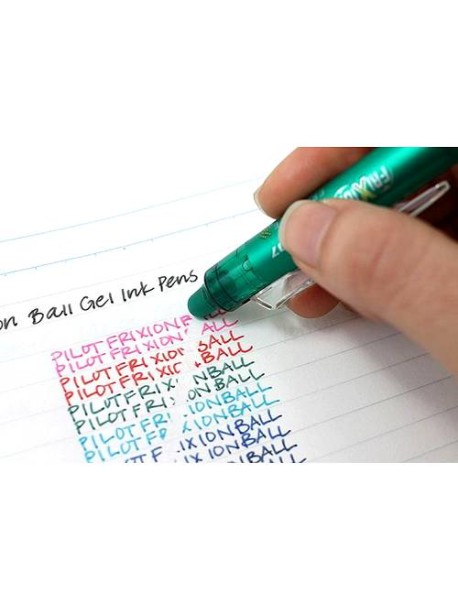 on Ball Gel Ink Pens
PILOT FRIXION BALL
PILOT FRIXION ALL
PILOT FRIXION BALL
PILOT FRIXIO BALL
PILOT FRIXIONBALL
PILOT FRI ON BALL
PILOT FR XION BALL
PILOT F IXIONBALL
IXIONBALL
BALL
FRIXION